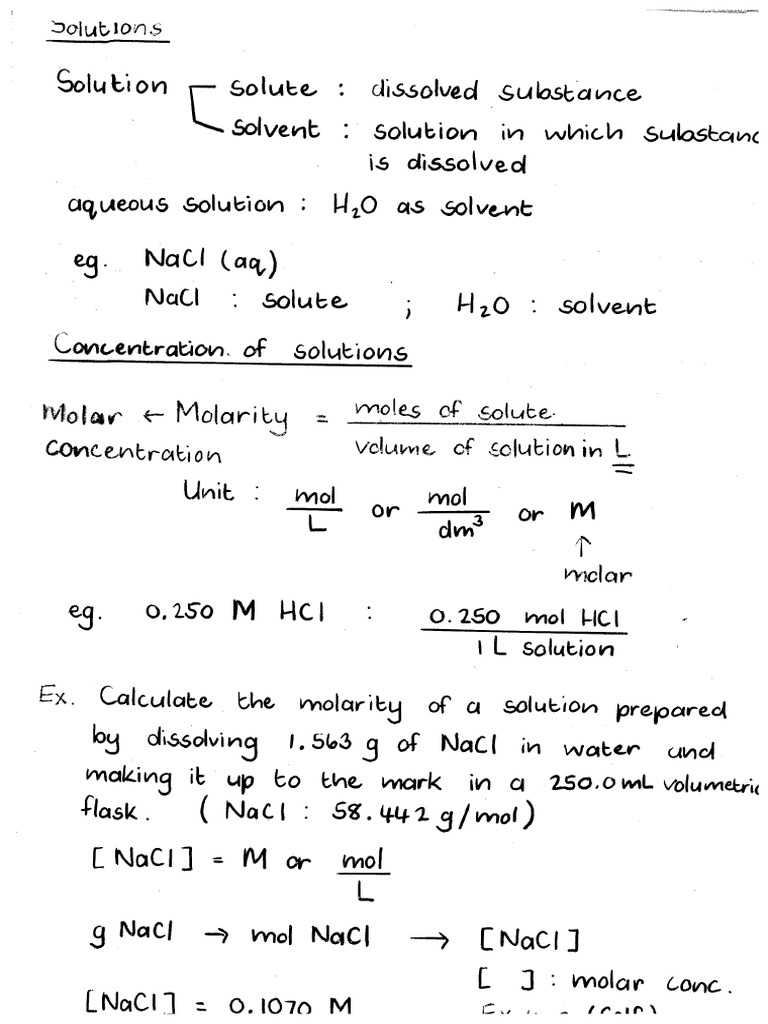 Solutions
Solution
solute : dissolved substance
solvent : solution in which substanc
is dissolved
aqueous solution : H₂O as solvent
eg. NaCl (aq)
NaCl : solute ; H₂O : solvent
Concentration of solutions
Molar ← Molarity = moles of solute
concentration volume of solution in L
Unit : mol/L or mol/dm³ or M
↑
molar
eg. 0.250 M HCl : 0.250 mol HCl
1 L solution
Ex. Calculate the molarity of a solution prepared
by dissolving 1.563 g of NaCl in water and
making it up to the mark in a 250.0 mL volumetric
flask. ( NaCl : 58.442 g/mol)
[NaCl] = M or mol/L
g NaCl → mol NaCl → [NaCl]
[ ] : molar conc.
[NaCl] = 0.1070 M